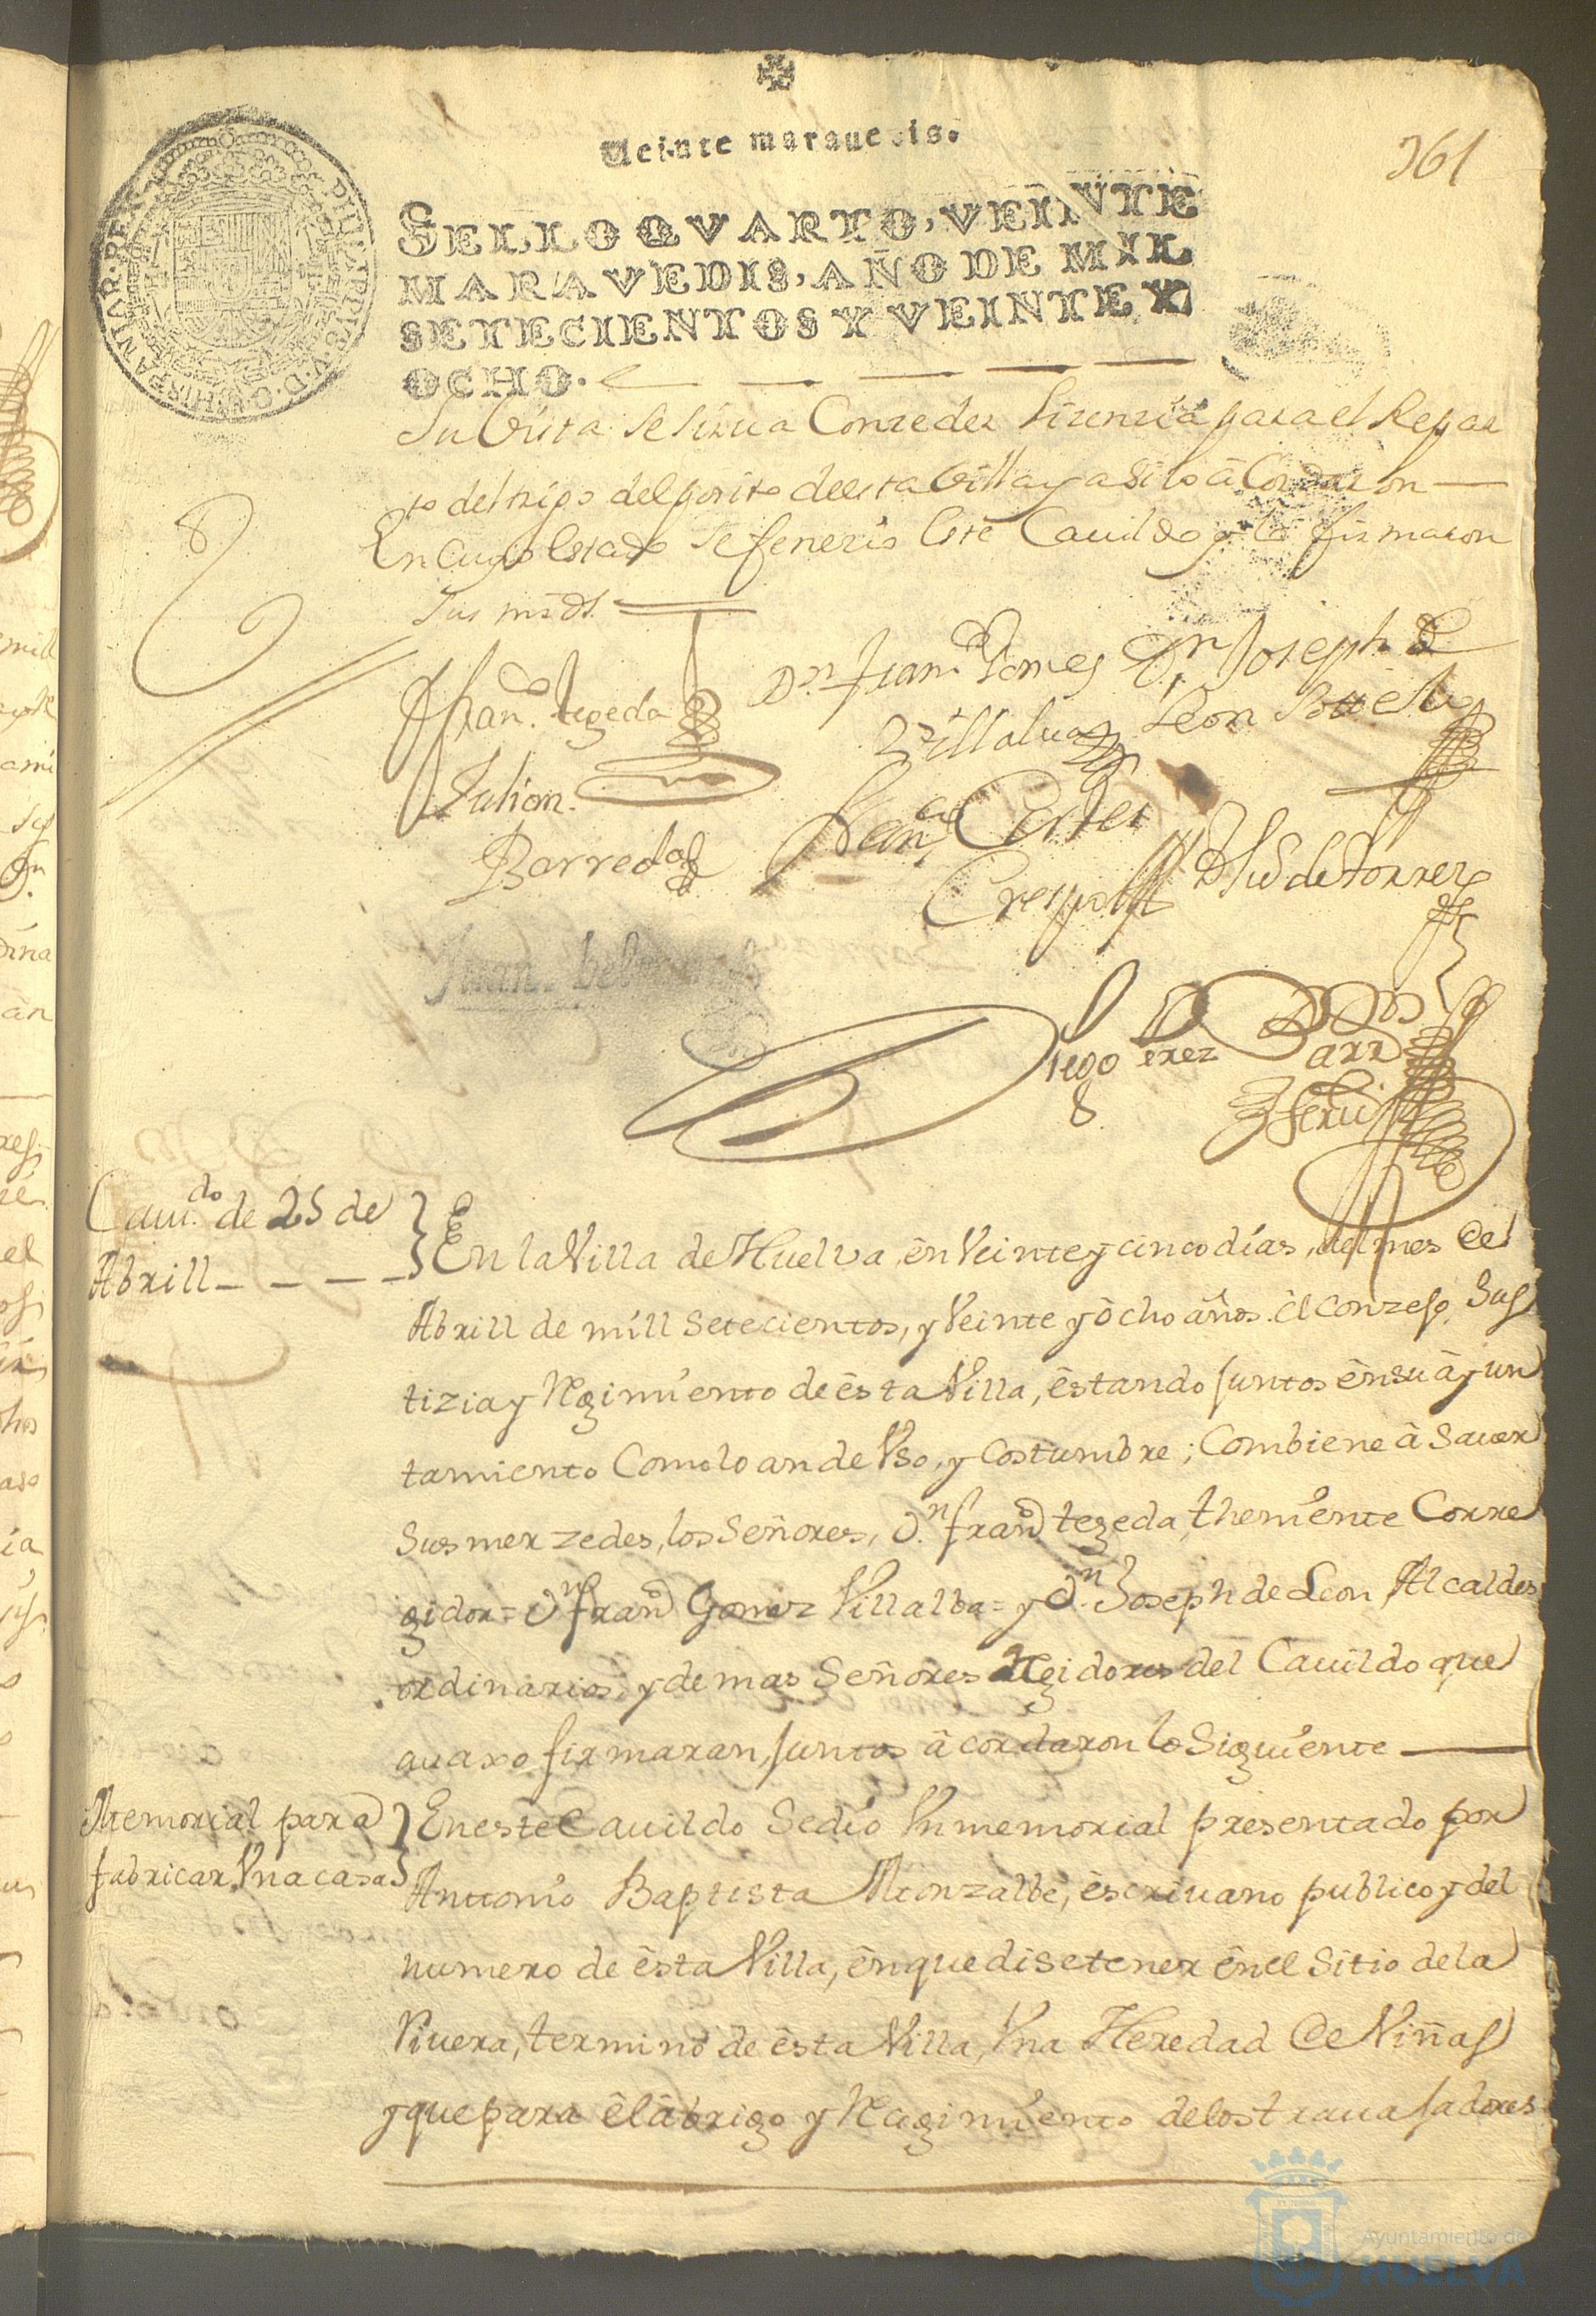 Veinte marauedis.
361
SELLO QVARTO, VEINTE
MARAVEDIS, AÑO DE MIL
SETECIENTOS Y VEINTE Y
OCHO.
PHILIPPVS V D G HISPANIAR REX
Su Vista Se sirua Conzeder Lizenzia para el Repar
to del trigo del posito deesta Villa y asi lo acordaron
En Cuyo Estado Se fenezio Este Cauildo y lo firmaron
Sus mrds.
Dn Juan Gomez
Villalua
Dn Joseph de
Leon Buelba
Fran.co tegeda
Julian
Barreda
Fran.co Cortes
Crespo
de torres
Juan
Diego Perez
Cauu.do de 25 de
Abrill
En la Villa de Huelva, ên Veinte y cinco días, del mes de
Abrill de mill Setecientos, y Veinte y ôcho âños. êl Conzejo Jus
tizia y Regimiento de êsta Villa, êstando Juntos ênsu âyun
tamiento Como lo an de Vso, y Costumbre; Combiene â Sauer
Sus merzedes, los Señores, Dn. fran.co tegeda, theniente Corre
gidor = Dn fran.co Gomez Villalba = y Dn. Joseph de Leon Alcaldes
ordinarios, y demas Señores Regidores del Cauildo que
auaxo firmaran, Juntos âcordaron lo Siguiente
Memorial para
fabricar Vna casa
En este Cauildo Sedio Vn memorial presentado por
Antonio Baptista Monzalbe, êscriuano publico y del
numero de êsta Villa, ên que dise tener ên el Sitio de la
Riuera, termino de êsta Villa, Vna Heredad de Viñas
y que para êl âbrigo y Recogimiento de los trauajadores
Ayuntamiento de
HUELVA